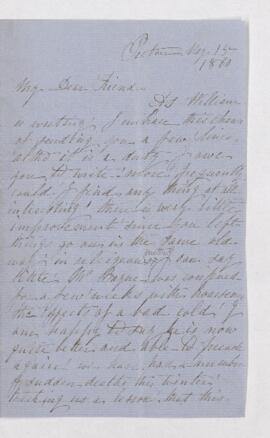 Pictou
1860
My Dear Friend
As William
is writing I embrace this chance
of sending you a few lines
altho it is a duty I owe
you to write more frequently
could I find any thing at all
interesting there is very little
improvement since you left
things go on in the same old
way in religion
was confined
for a few weeks with
the effects of a bad cold I
am happy to say he is now
quite better and able to preach
again we have had a number
of sudden deaths this winter
teaching us a lesson that this